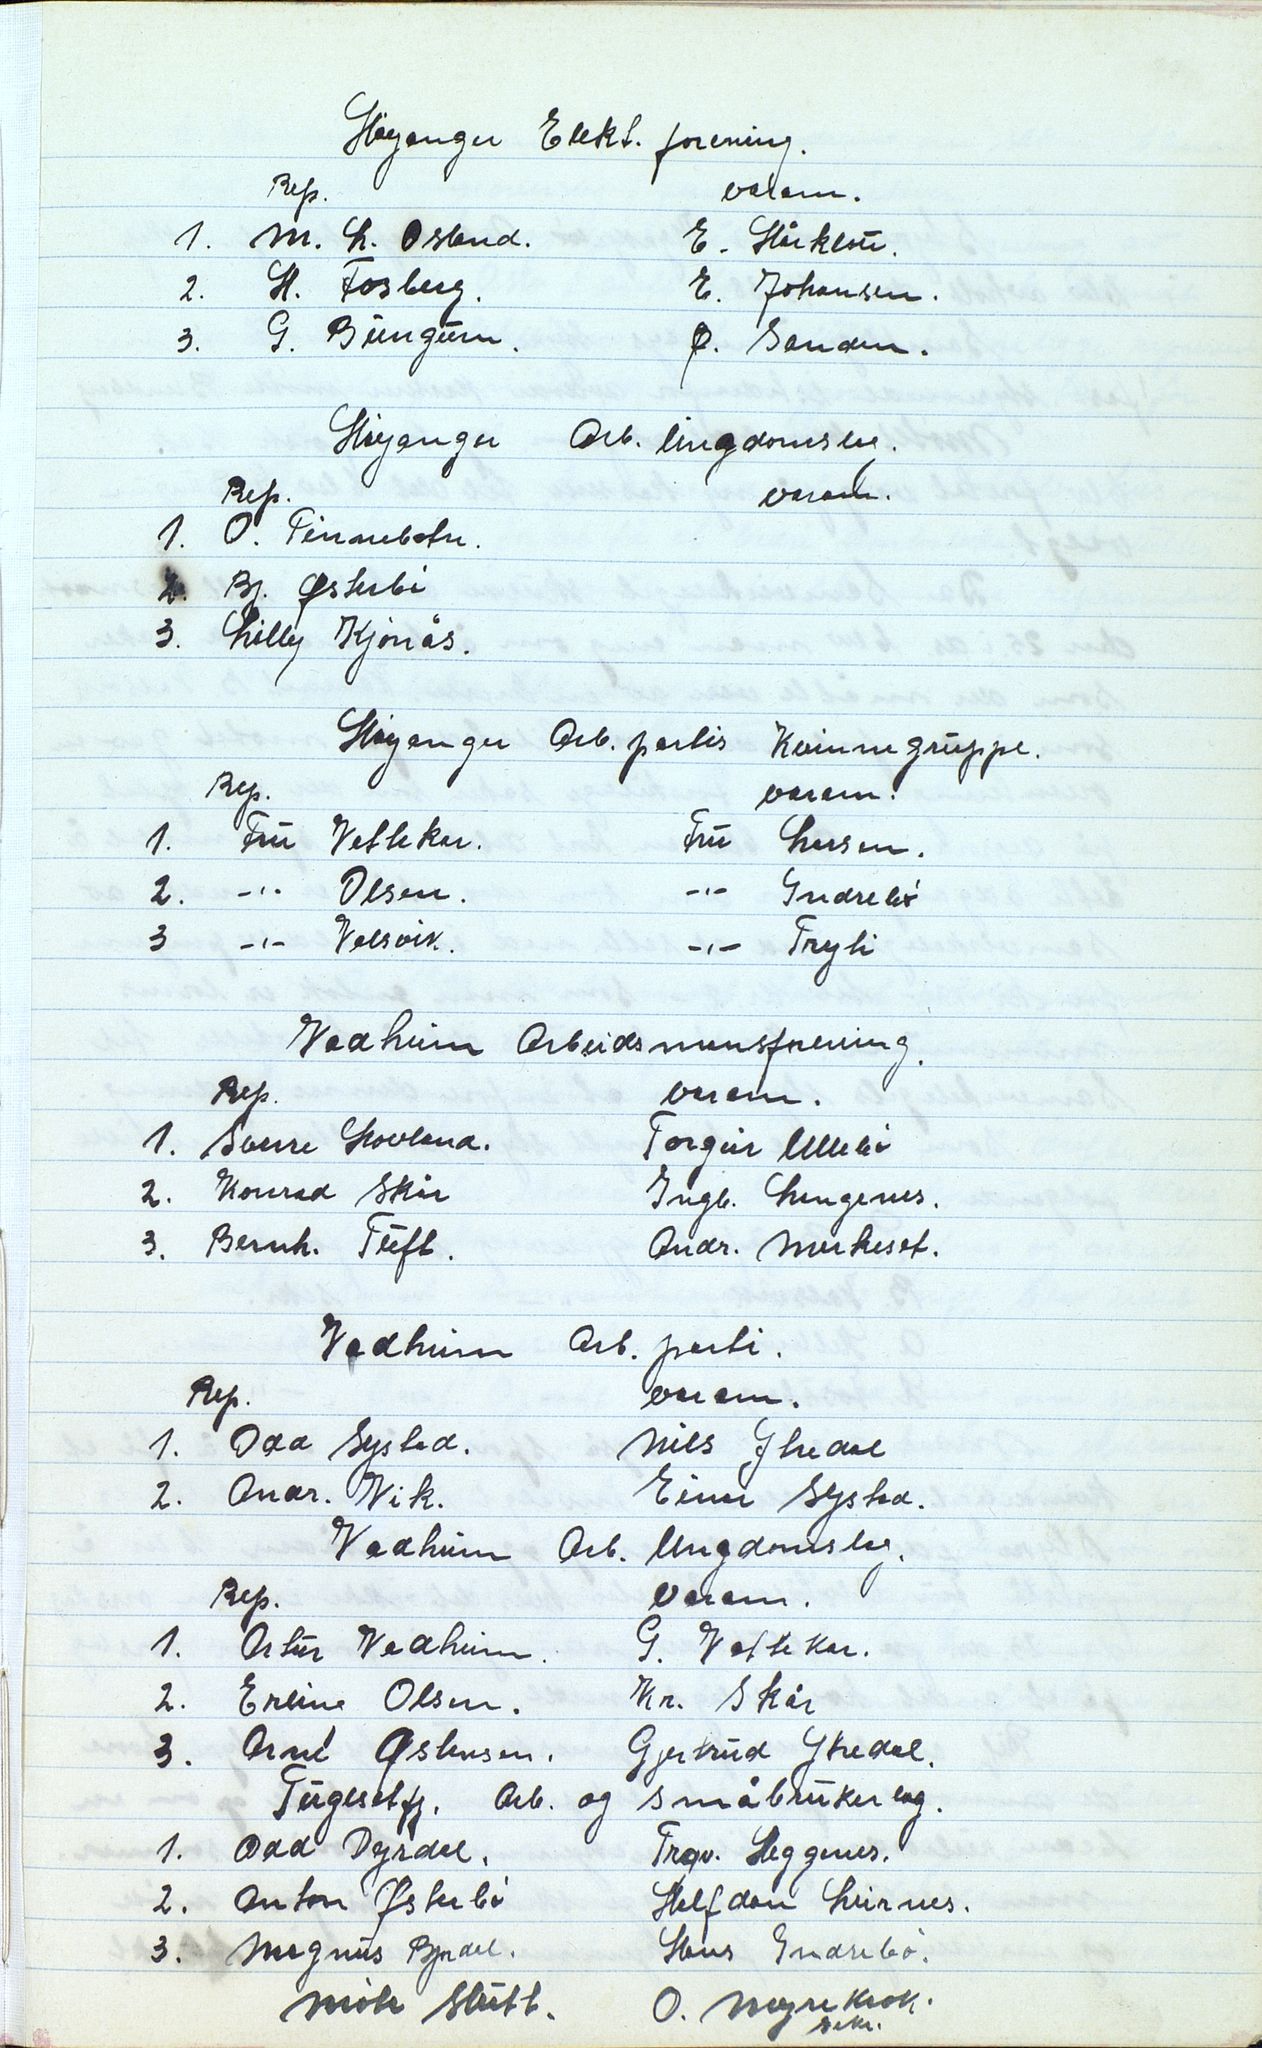 Høyanger Elekt. forening.
Rep. varam.
1. M. L. Osland. E. Hårklau.
2. H. Fosberg. E. Johansen.
3. G. Bungum. Ø. Sanden.
Høyanger Arb. Ungdomslag.
Rep. varam.
1. O. Finnebotn.
2. Bj. Østerbø
3. Lilly Kjønås.
Høyanger Arb. partis Kvinnegruppe.
Rep. varam.
1. Fru Vettekar. Fru Larsen.
2. -"- Olsen. -"- Indrebø
3 -"- Valsvik. -"- Fryli
Vadheim Arbeidsmansforening.
Rep. varam.
1. Sverre Hovland. Torgeir Ullebø
2. Konrad Skår Ingb. Lungenes.
3. Bernh. Tuft. Andr. Morkeset.
Vadheim Arb. parti.
Rep. varam.
1. Odd Systad. Nils Ytredal
2. Andr. Vik. Einar Systad.
Vadheim Arb. Ungdomslag.
Rep. Varam.
1. Artur Vadheim. G. Vettekar.
2. Erline Olsen. Kr. Skår
3. Arne Østensen. Gjertrud Ytredal.
Fuglsetfj. Arb. og småbrukerlag.
1. Odd Dyrdal. Trygv. Heggenes.
2. Anton Østerbø Halfdan Leirnes.
3. Magnus Dyrdal. Hans Indrebø.
Møte Slutt. O. Myrekrok.
sekr.